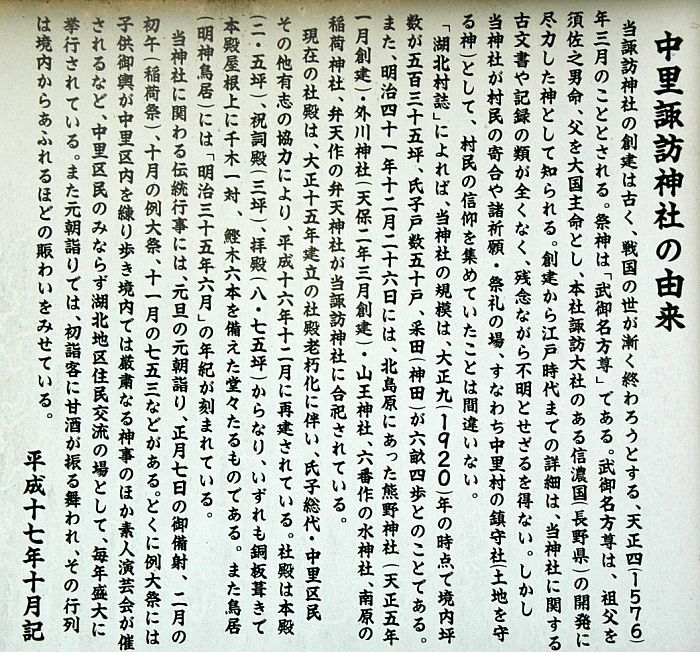 中里諏訪神社の由来
当諏訪神社の創建は古く、戦国の世が漸く終わろうとする、天正四(1576)
年三月のこととされる。祭神は「武御名方尊」である。武御名方尊は、祖父を
須佐之男命、父を大国主命とし、本社諏訪大社のある信濃国(長野県)の開発に
尽力した神として知られる。創建から江戸時代までの詳細は、当神社に関する
古文書や記録の類が全くなく、残念ながら不明とせざるを得ない。しかし
当神社が村民の寄合や諸祈願・祭礼の場、すなわち中里村の鎮守社(土地を守
る神)として、村民の信仰を集めていたことは間違いない。
「湖北村誌」によれば、当神社の規模は、大正九(1920)年の時点で境内坪
数が五百三十五坪、氏子戸数五十戸、采田(神田)が六畝四歩とのことである。
また、明治四十一年十二月二十六日には、北島原にあった熊野神社(天正五年
一月創建)・外川神社(天保二年三月創建)・山王神社、六番作の水神社、南原の
稲荷神社、弁天作の弁天神社が当諏訪神社に合祀されている。
現在の社殿は、大正十五年建立の社殿老朽化に伴い、氏子総代・中里区民
その他有志の協力により、平成十六年十二月に再建されている。社殿は本殿
(二・五坪)、祝詞殿(三坪)、拝殿(八・七五坪)からなり、いずれも銅板葺きで
本殿屋根上に千木一対、鰹木六本を備えた堂々たるものである。また鳥居
(明神鳥居)には「明治三十五年六月」の年紀が刻まれている。
当神社に関わる伝統行事には、元旦の元朝詣り、正月七日の御備射、二月の
初午(稲荷祭)、十月の例大祭、十一月の七五三などがある。とくに例大祭には
子供御輿が中里区内を練り歩き境内では厳粛なる神事のほか素人演芸会が催
されるなど、中里区民のみならず湖北地区住民交流の場として、毎年盛大に
挙行されている。また元朝詣りでは、初詣客に甘酒が振る舞われ、その行列
は境内からあふれるほどの賑わいをみせている。
平成十七年十月記